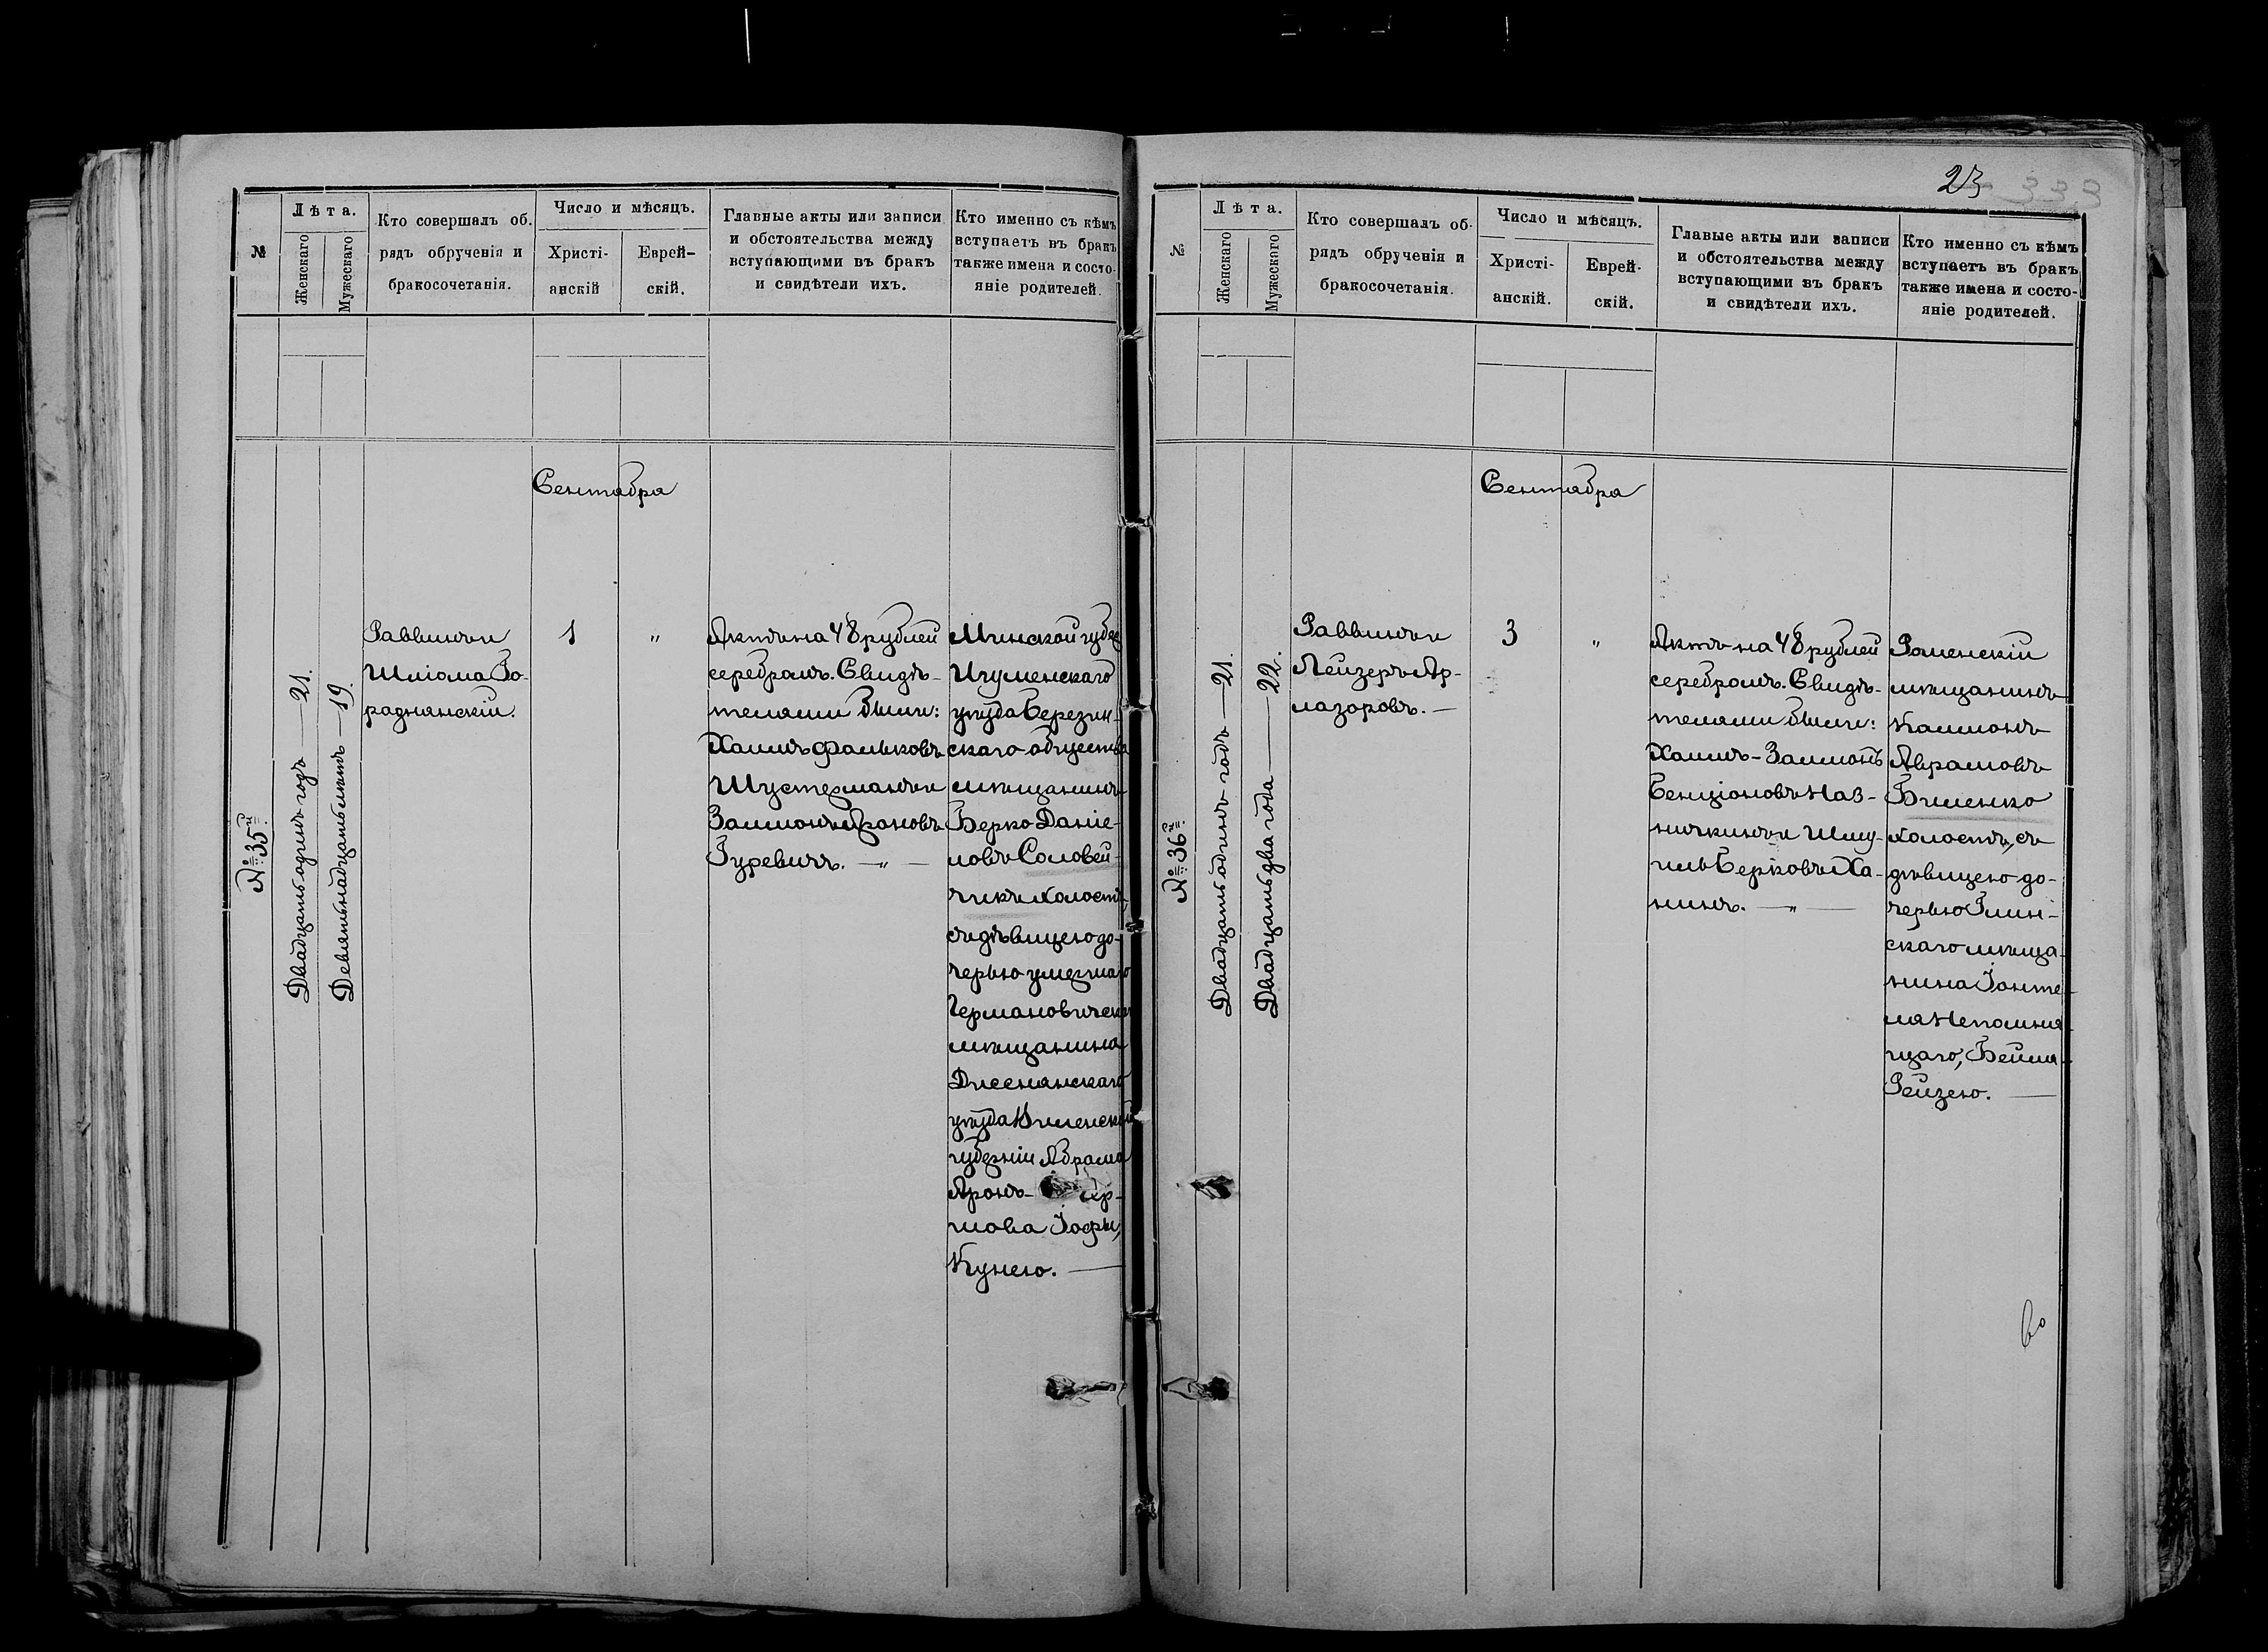 №
Лѣта.
Женскаго
Мужескаго
Кто совершалъ об.
рядъ обрученія и
бракосочетанія.
Число и мѣсяцъ.
Христі-
анскій
Еврей-
скій.
Главные акты или записи
и обстоятельства между
вступающими въ бракъ
и свидѣтели ихъ.
Кто именно съ кѣмъ
вступаетъ въ бракъ
также имена и состо-
яніе родителей.
Сентабра
№ 35й.
Двадцать одинъ годъ — 21.
Девятьнадцать лѣтъ — 19.
Раввинъ и
Шліома Го-
раднянскій.
1
"
Актъ на 48 рублей
серебромъ. Свидѣ-
телями были:
Хаимъ Фальковъ
Шустерманъ и
Залмонъ Ароновъ
Гуревичъ. — " —
Минской губер
Игуменскаго
уѣзда Березин-
скаго общества
мѣщанинъ
Берко Даніе-
ловъ Соловей-
чикъ холостъ,
съ дѣвицею до-
черью умершаго
Германовическ
мѣщанина
Дисенянскаго
уѣзда Виленской
губерніи Абрама
Аронъ-
шова Іофы,
Кунею. —
23
№
Лѣта.
Женскаго
Мужескаго
Кто совершалъ об-
рядъ обрученія и
бракосочетанія.
Число и мѣсяцъ.
Христі-
анскій.
Еврей-
скій.
Главые акты или записи
и обстоятельства между
вступающими въ бракъ
и свидѣтели ихъ.
Кто именно съ кѣмъ
вступаетъ въ бракъ
также имена и состо-
яніе родителей.
Сентабра
№ 36й.
Двадцать одинъ годъ — 21.
Двадцать два года — 22.
Раввинъ и
Лейзеръ Ар-
лазоровъ. —
3
"
Актъ на 48 рублей
серебромъ. Свидѣ-
телями были:
Хаимъ-Залмонъ
Бенціоновъ Наз-
ничкинъ и Шму-
иль Берковъ Ха-
нинъ. — " —
Роменскій
мѣщанинъ
Калмонъ
Аврамовъ
Биленко
холостъ, съ
дѣвицею до-
черью Глин-
скаго мѣща-
нина Іонте-
ля Непомня-
щаго, Бейла-
Рейзею. —